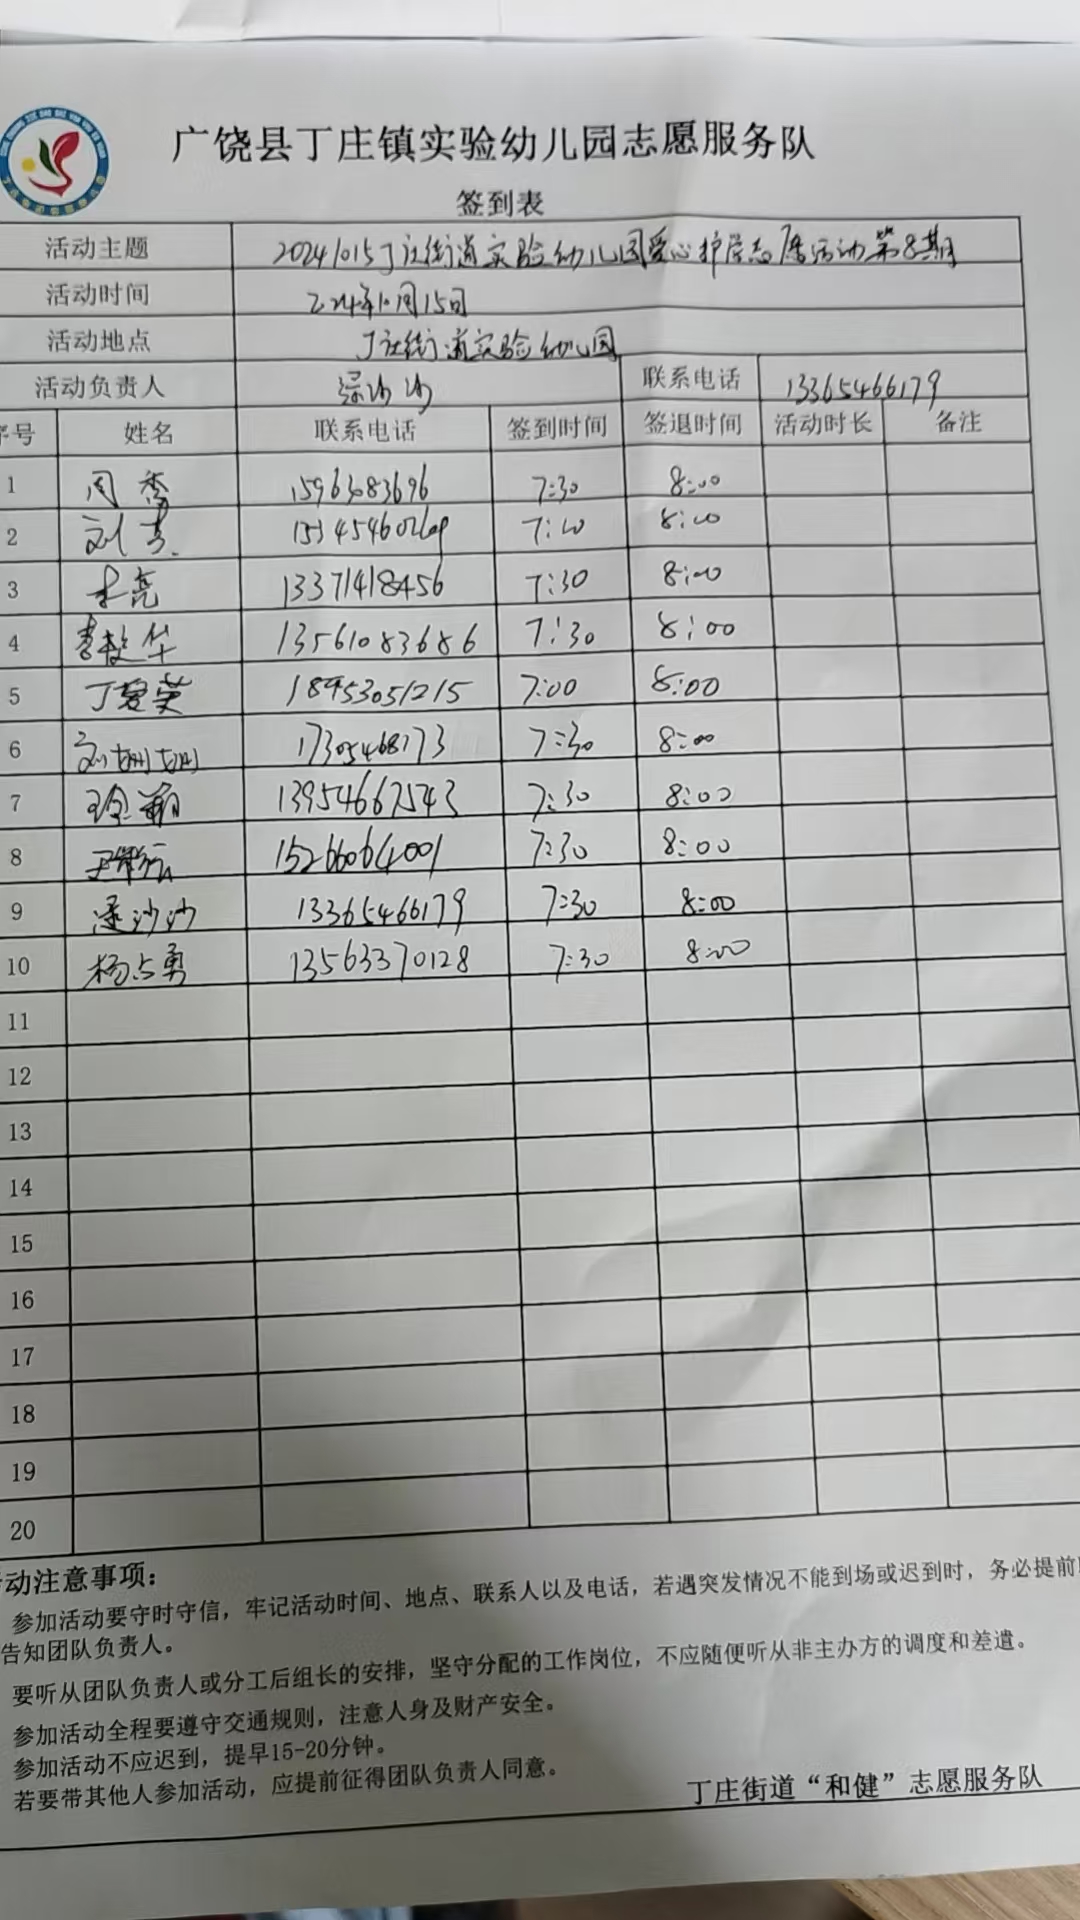 广饶县丁庄镇实验幼儿园志愿服务队
签到表
活动主题 20241015丁庄街道实验幼儿园爱心护学志愿活动第8期
活动时间 2024年10月15日
活动地点 丁庄街道实验幼儿园
活动负责人 沙沙 联系电话 13365466179
序号 姓名 联系电话 签到时间 签退时间 活动时长 备注
1 周秀 15963083696 7:30 8:00
2 刘 7:00 8:00
3 李亮 13371418456 7:30 8:00
4 李 华 13561083686 7:30 8:00
5 丁爱英 18953051215 7:00 8:00
6 刘姗姗 17305468173 7:30 8:00
7 13954667543 7:30 8:00
8 王 15266064001 7:30 8:00
9 沙沙 13365466179 7:30 8:00
10 杨占勇 13563370128 7:30 8:00
11
12
13
14
15
16
17
18
19
20
动注意事项：
参加活动要守时守信，牢记活动时间、地点、联系人以及电话，若遇突发情况不能到场或迟到时，务必提前
告知团队负责人。
要听从团队负责人或分工后组长的安排，坚守分配的工作岗位，不应随便听从非主办方的调度和差遣。
参加活动全程要遵守交通规则，注意人身及财产安全。
参加活动不应迟到，提早15-20分钟。
若要带其他人参加活动，应提前征得团队负责人同意。
丁庄街道“和健”志愿服务队